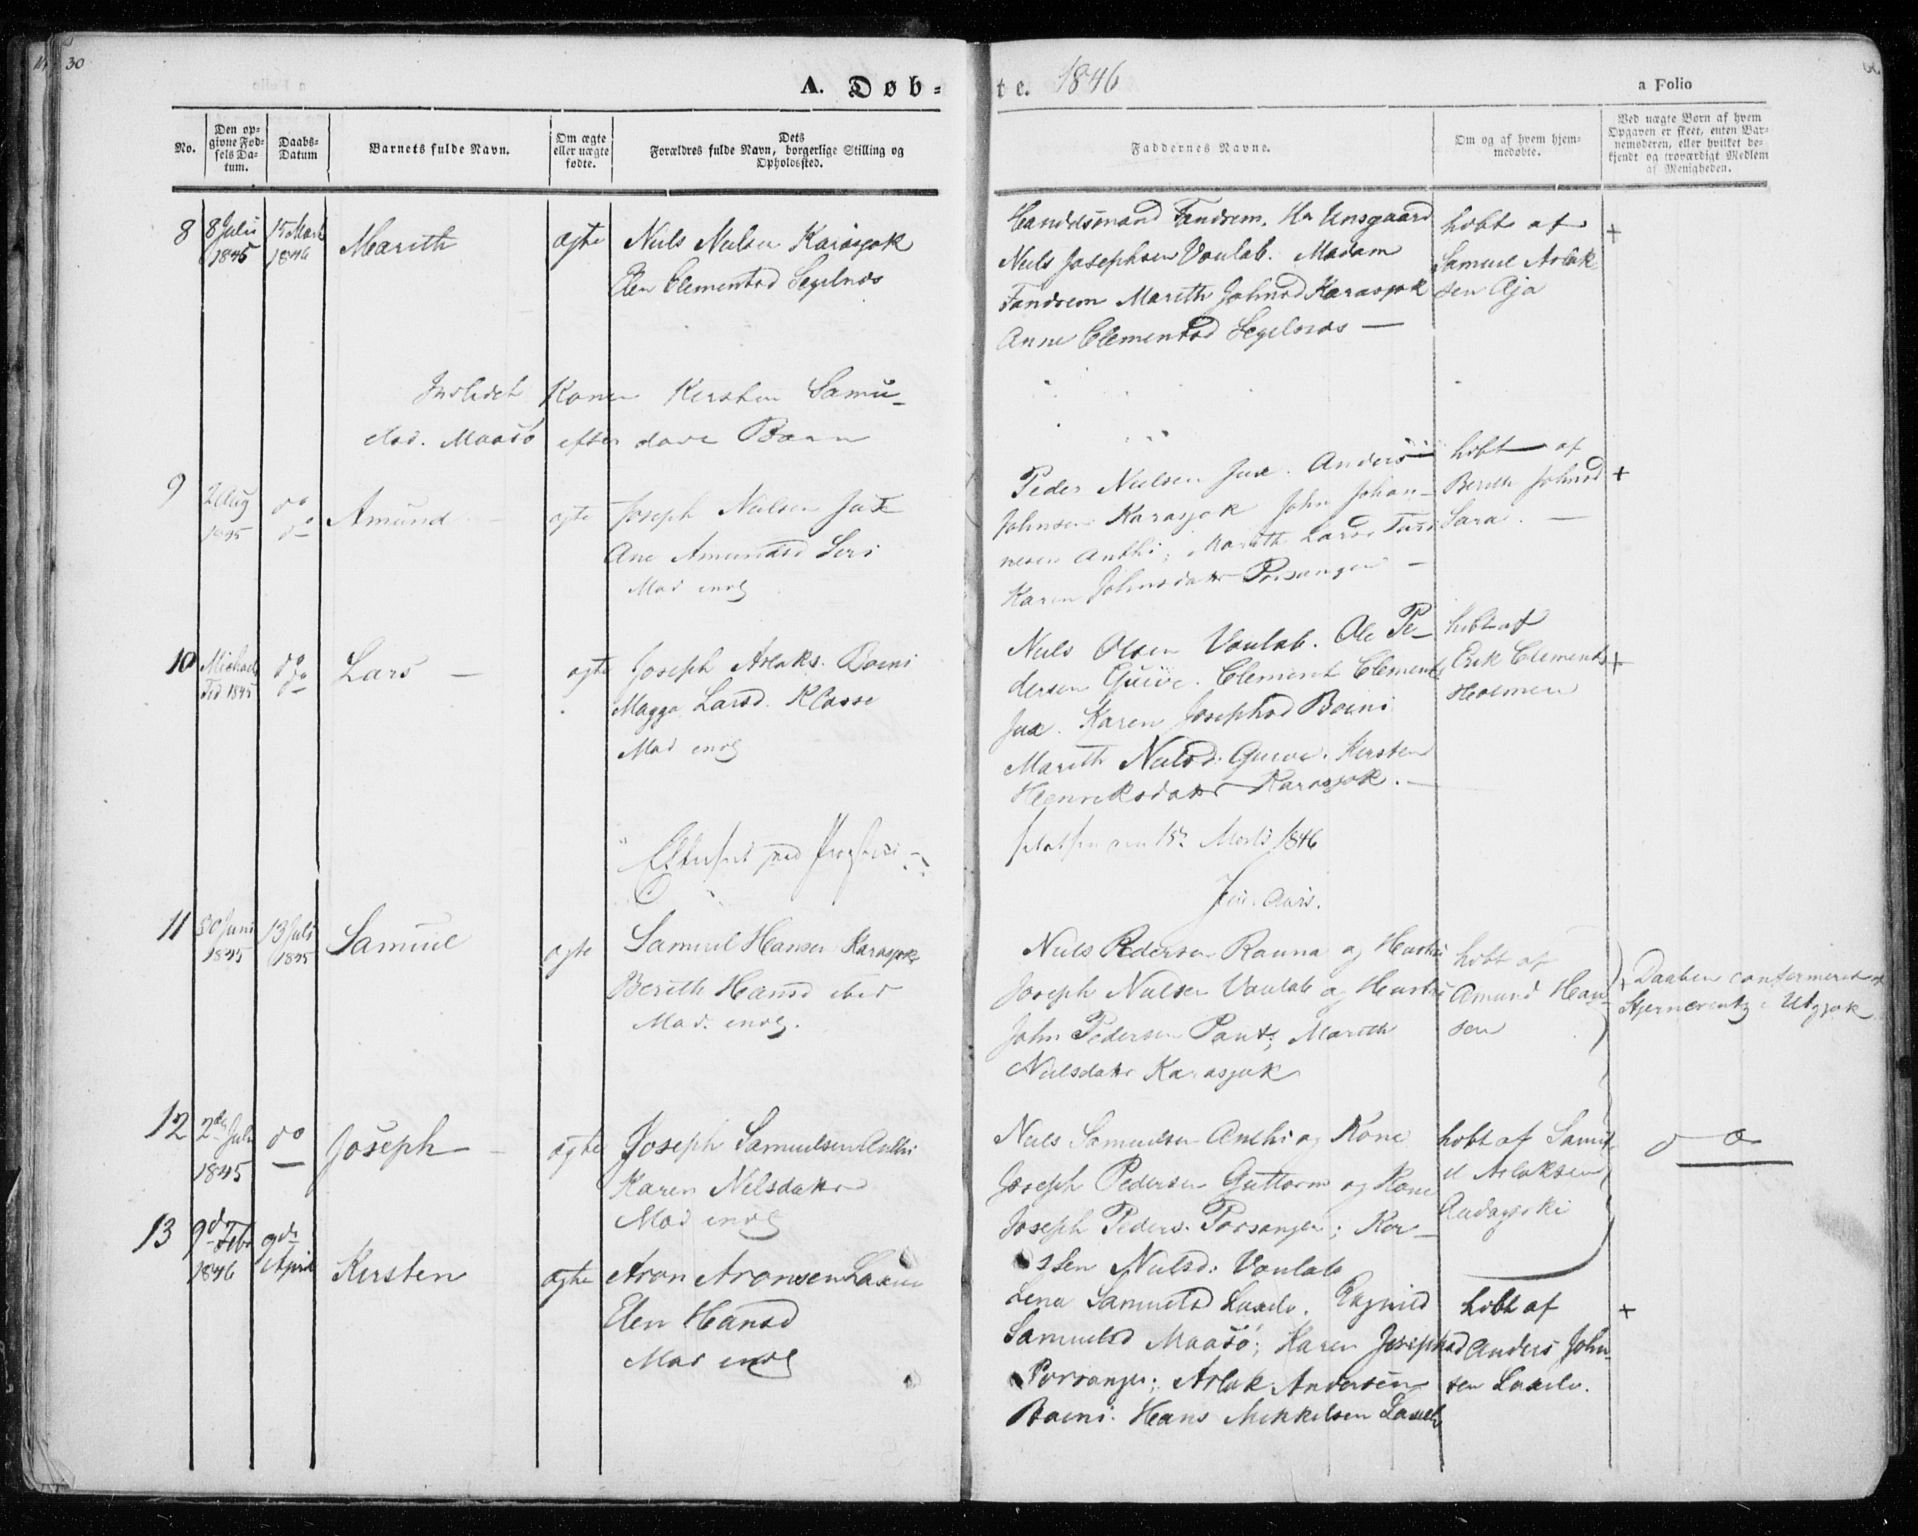 30
A. Døb-
te. 1846
a Folio
No.
Den op-
givne Fød-
sels Da-
tum.
Daabs-
Datum
Barnets fulde Navn.
Om ægte
eller uægte
fødte.
Dets
Forældres fulde Navn, borgerlige Stilling og
Opholdssted.
Faddernes Navne.
Om og af hvem hjem-
medøbte.
Ved uægte Børn af hvem
Opgaven er skeet, enten Bar-
nemoderen, eller hvilket be-
kjendt og troværdigt Medlem
af Menigheden.
8
8 Julii
1845
15 Marts
1846
Marith
ægte
Niels Nielsen Karasjok
Elen Clementsd Segelnæs
Handelsmand Fandrem. Hr Unsgaard
Niels Josephsen Voulab. Madam
Fandrem Marith Johnsd Karasjok
Anne Clementsd Segelnæs —
hdbt af
Samuel Aslak
sen Aja
+
Indledet Konen Kersten Samu-
elsd. Maasø efter døve Barn
9
2 Aug
1845
do
do
Amund
ægte
Joseph Nielsen Jux
Ane Amundsd Seri
Mad indl
Peder Nielsen Jux. Anders
Johnsen Karasjok John Johan-
nesen Anthi; Marith Larsd
Karen Johnsdatter Porsanger —
hdbt af
Berith Johnsd
Sara. —
+
10
Michaels
Tid 1845
do
do
Lars —
ægte
Joseph Aslaks. Boini
Magga Larsd. Klasse
Mad indl
Niels Olsen Voulab. Ole Pe-
dersen Guive. Clement Clements
Jux. Karen Josephsd Boini
Marith Nielsd. Guive. Kersten
Henriksdatter Karasjok. —
hdbt af
Erik Clements
Holmen
+
15de Marts 1846
11
30 Juni
1845
13 Juli
1845
Samuel
ægte
Samuel Hansen Karasjok
Berith Hansd ibid
Mad. indl.
Niels Pedersen Rauna og Hustru
Joseph Nielsen Voulab og Hustru
John Pedersen Pant; Marith
Nielsdatter Karasjok
hdbt af
Amund Han-
sen
+ Daaben confirmeret af
i Utsjok
12
2de Juli
1845
do
Joseph —
ægte
Joseph Samuelsen Anthi
Karen Nilsdatter
Mad indl
Niels Samuelsen Anthi og Kone
Joseph Pedersen Guttorm og Kone
Joseph Peders. Porsanger; Ker-
sten Nielsd: Voulab
hdbt af Samu-
el Aslaksen
do
13
9de Febr
1846
9de
April
Kersten
ægte
Aron Aronsen Laxelv
Elen Hansd
Mad indl
Lena Samuelsd Laxelv. Ragnild
Samuelsd Maasø; Karen Josephsd
Porsanger; Aslak Andersen
Boini. Hans Mikkelsen Laxelv
hdbt af
Anders John-
sen Laxelv.
+